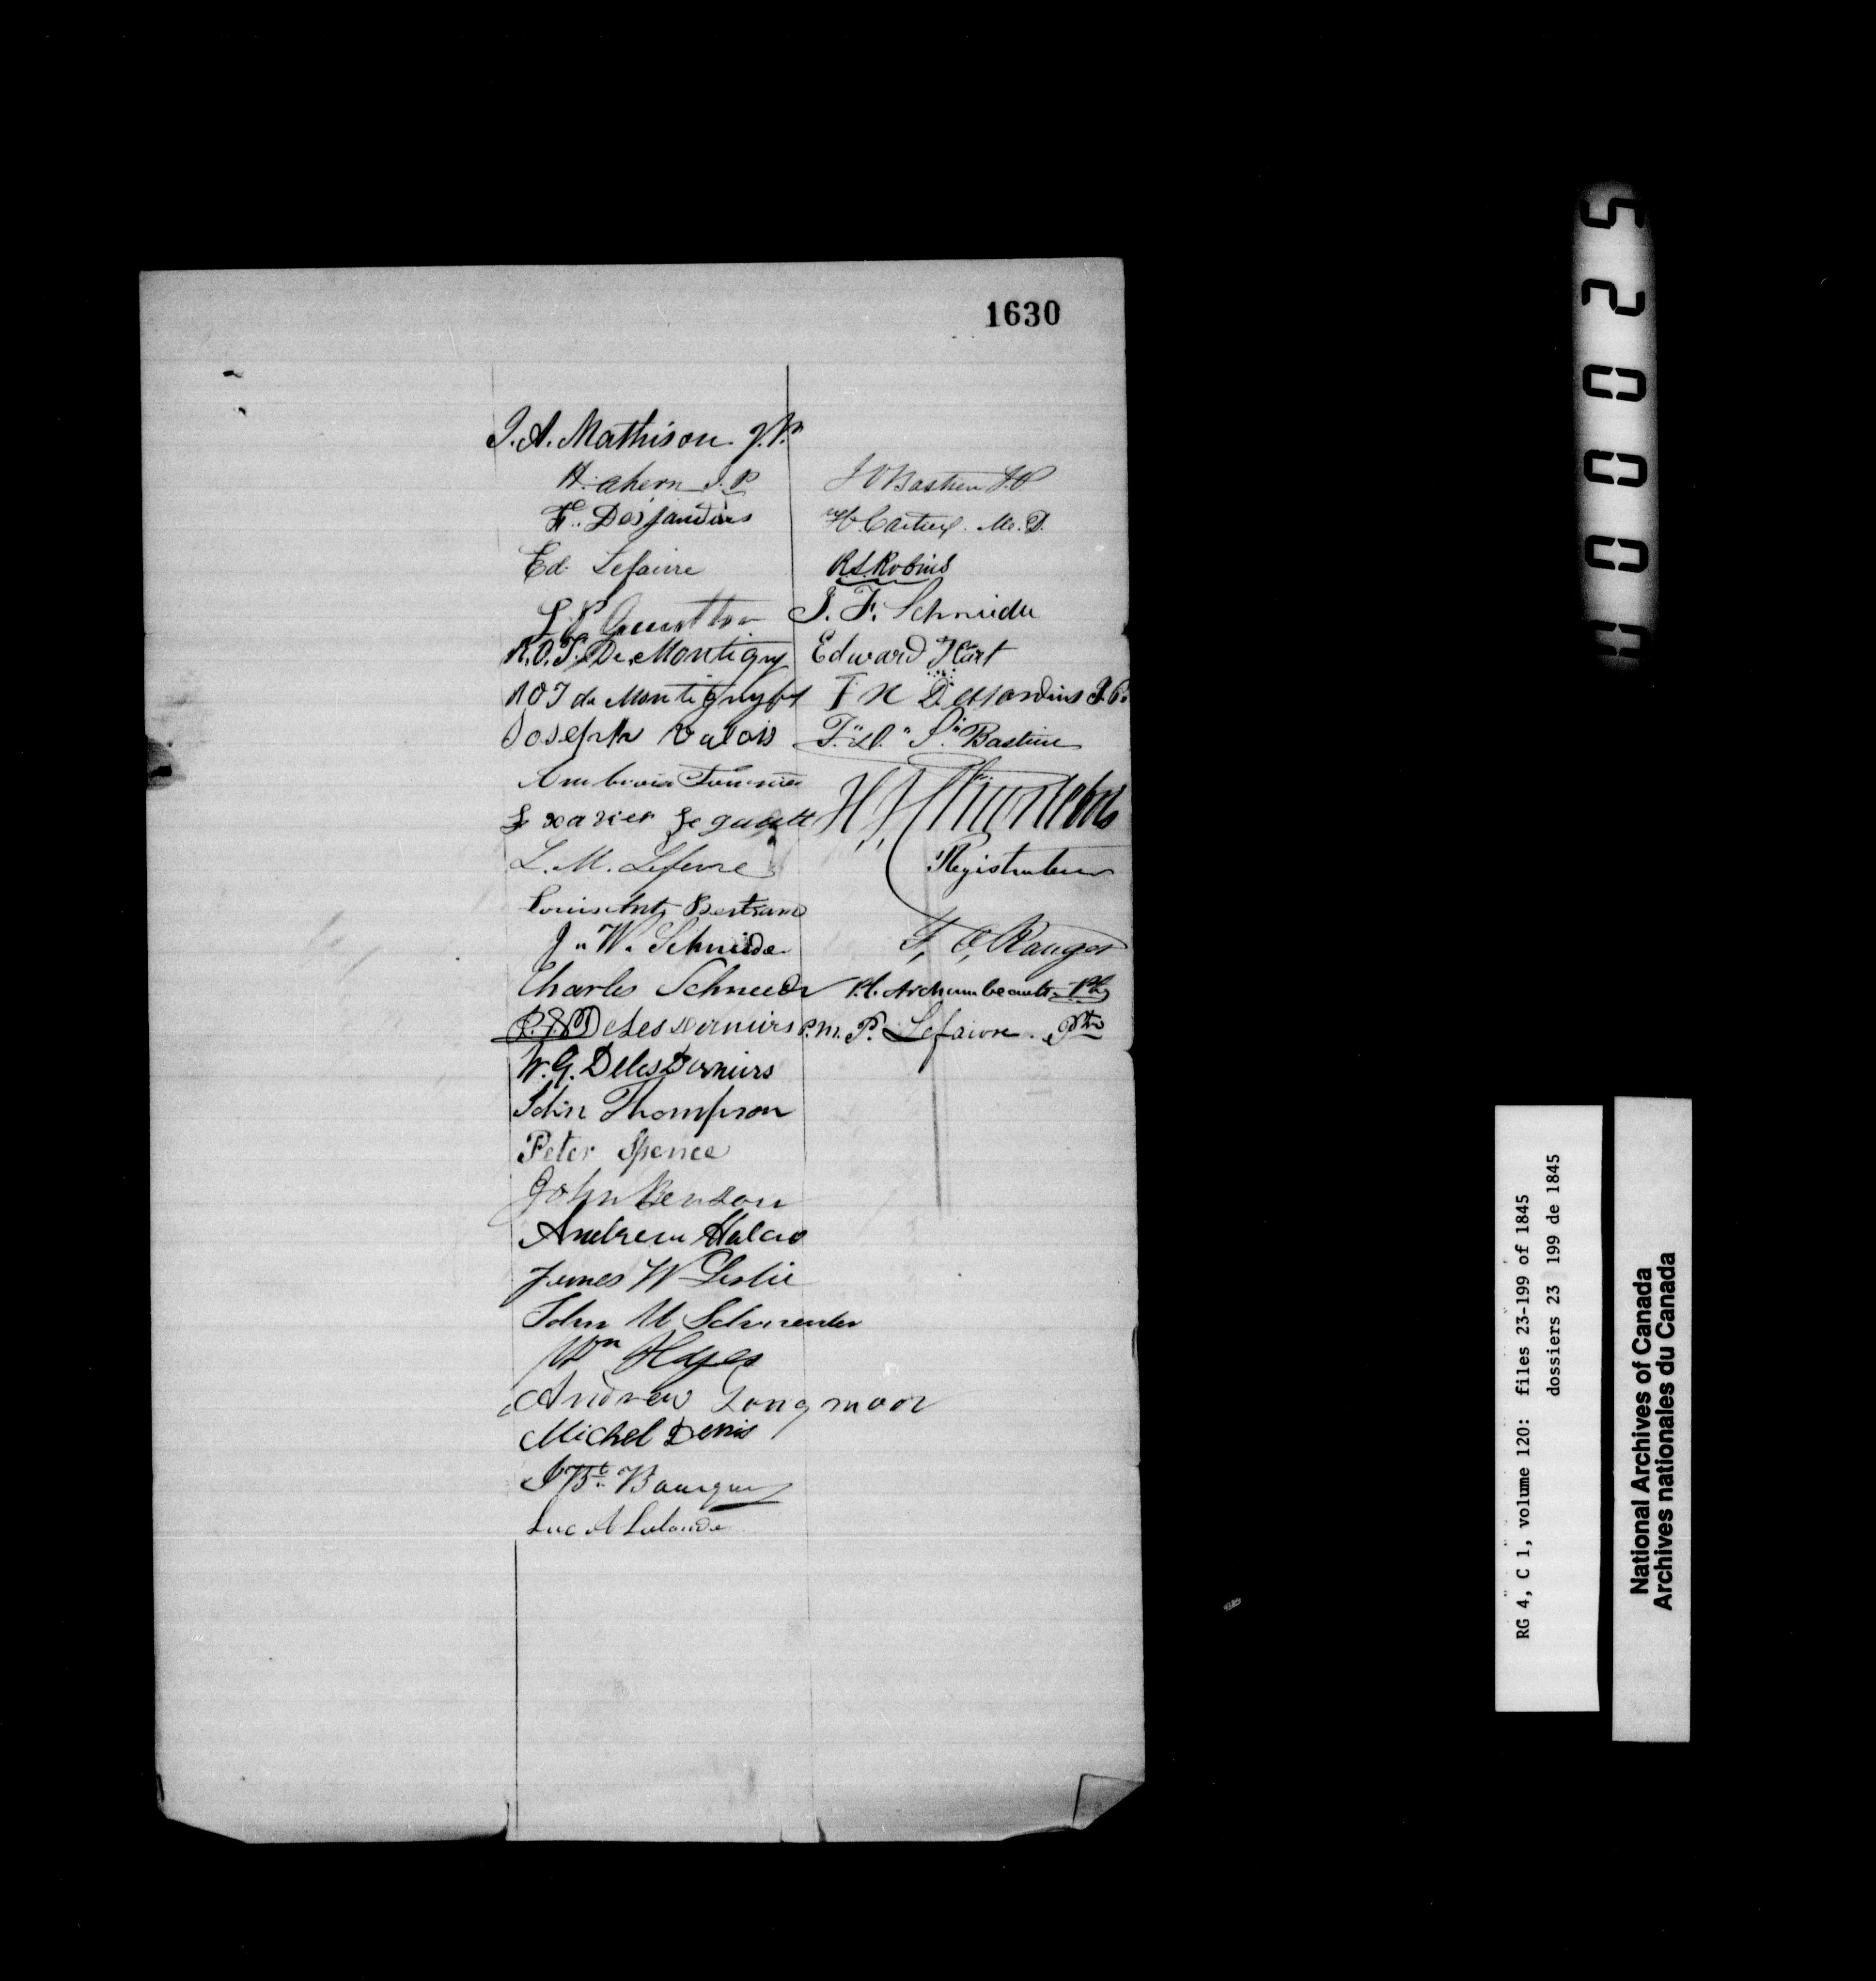 1630
J. A. Mathison J.P.
H. Ahern J.P
F. Desjardins
Ed. Lefaivre
R.O.T. De Montigny
ROT de Montigny
Joseph Valois
Fournier
L. M. Lefevre
Louis Bertrand
J. W. Schneider
Charles Schneider
DelesDerniers P.M.
W. G. DelesDerniers
John Thompson
Peter Spence
John Benson
Andrew Halcro
James W Leslie
John M Schneider
Wm Hayes
Andrew Longmoor
Michel Denis
J Bt. Bourque
Luc A Lalonde
Bastien J.P
Cartier. M. D.
R.S. Robins
J. F. Schneider
Edward Hart
F X Desjardins J.P.
Bastien
Registrateur
F. O. Ranger
P. Archambeault
P. Lefaivre. Ptre
00025
RG 4, C 1, volume 120: files 23-199 of 1845
dossiers 23 199 de 1845
National Archives of Canada
Archives nationales du Canada